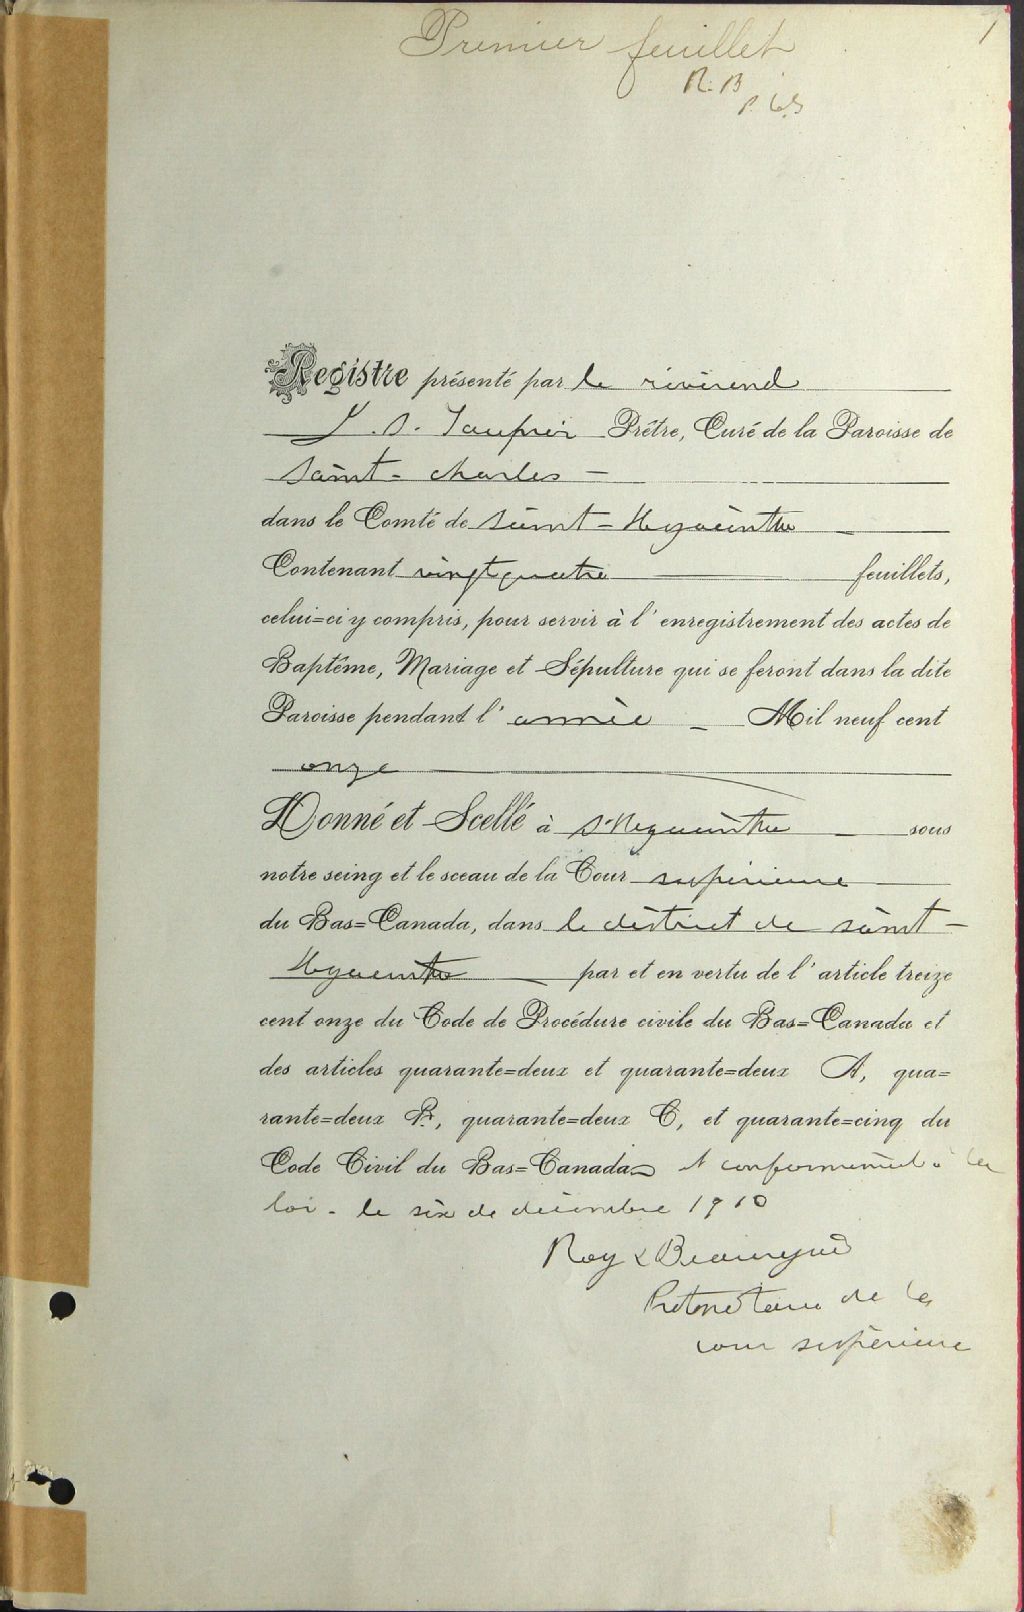 Premier feuillet
R. B
p. c. s
Registre présenté par le révérend
J. S. Taupier Prêtre, Curé de la Paroisse de
Saint-Charles
dans le Comté de Saint-Hyacinthe
Contenant vingt quatre feuillets,
celui=ci y compris, pour servir à l'enregistrement des actes de
Baptême, Mariage et Sépulture qui se feront dans la dite
Paroisse pendant l'année Mil neuf cent
onze
Donné et Scellé à St Hyacinthe sous
notre seing et le sceau de la Cour supérieure
du Bas=Canada, dans le district de saint-
Hyacinthe par et en vertu de l'article treize
cent onze du Code de Procédure civile du Bas=Canada et
des articles quarante=deux et quarante=deux A, qua=
rante=deux B, quarante=deux C, et quarante=cinq du
Code Civil du Bas=Canada et conformément à la
loi - le six de décembre 1910
Roy & Beauregard
Protonotaire de la
cour supérieure